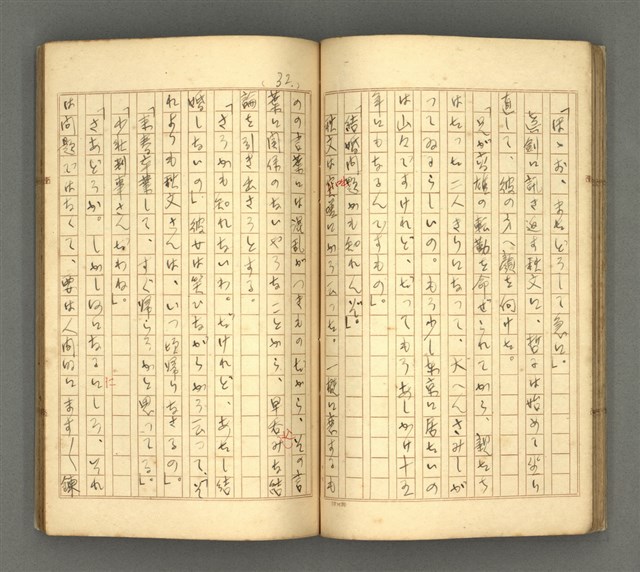 「はゝあ、またどうして急に」
真剣に訊き返す秋文に、哲子は始めて坐り
直して、彼の方へ顔を向けた。
「兄が高雄の転勤を命ぜられてから、親たち
はたった二人きりになって、大へんさみしが
ってゐるらしいの。もう少し東京に居たいの
は山々ですけれど、だってもうあしかけ十五
年にもなるんですもの」
「結婚問題かも知れんぞ」
秋文は冗談にから云った。一概に恋するも
32.
のの言葉には混乱がつきものだから、その言
葉に関係のないやうなことから、早呑みな結
論を引き出さうとする。
「さうかも知れないわ。だけれど、あたし結
婚しないの」彼女は笑ひながらから云って、「そ
れよりも秋文さんは、いつ頃帰りなさるの」
「来春卒業して、すぐ帰らうかと思ってる」
「少壮判事さんだわね」
「さあどうか。しかし何になるにしろ、それ
は問題ではなくて、要は人間的にますます錬